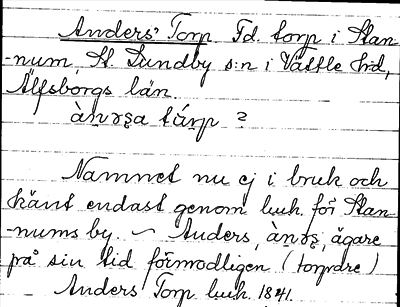 Anders' Torp. Fd. torp i Stan-
-num, St. Lundby s:n i Vättle hd,
Älfsborgs län.
ànəʂa tárp ?
Namnet nu ej i bruk och
känt endast genom huh. för Stan-
-nums by. — Anders, ànəʂ, ägare
på sin tid förmodligen (torpare)
Anders Torp huh. 1841.